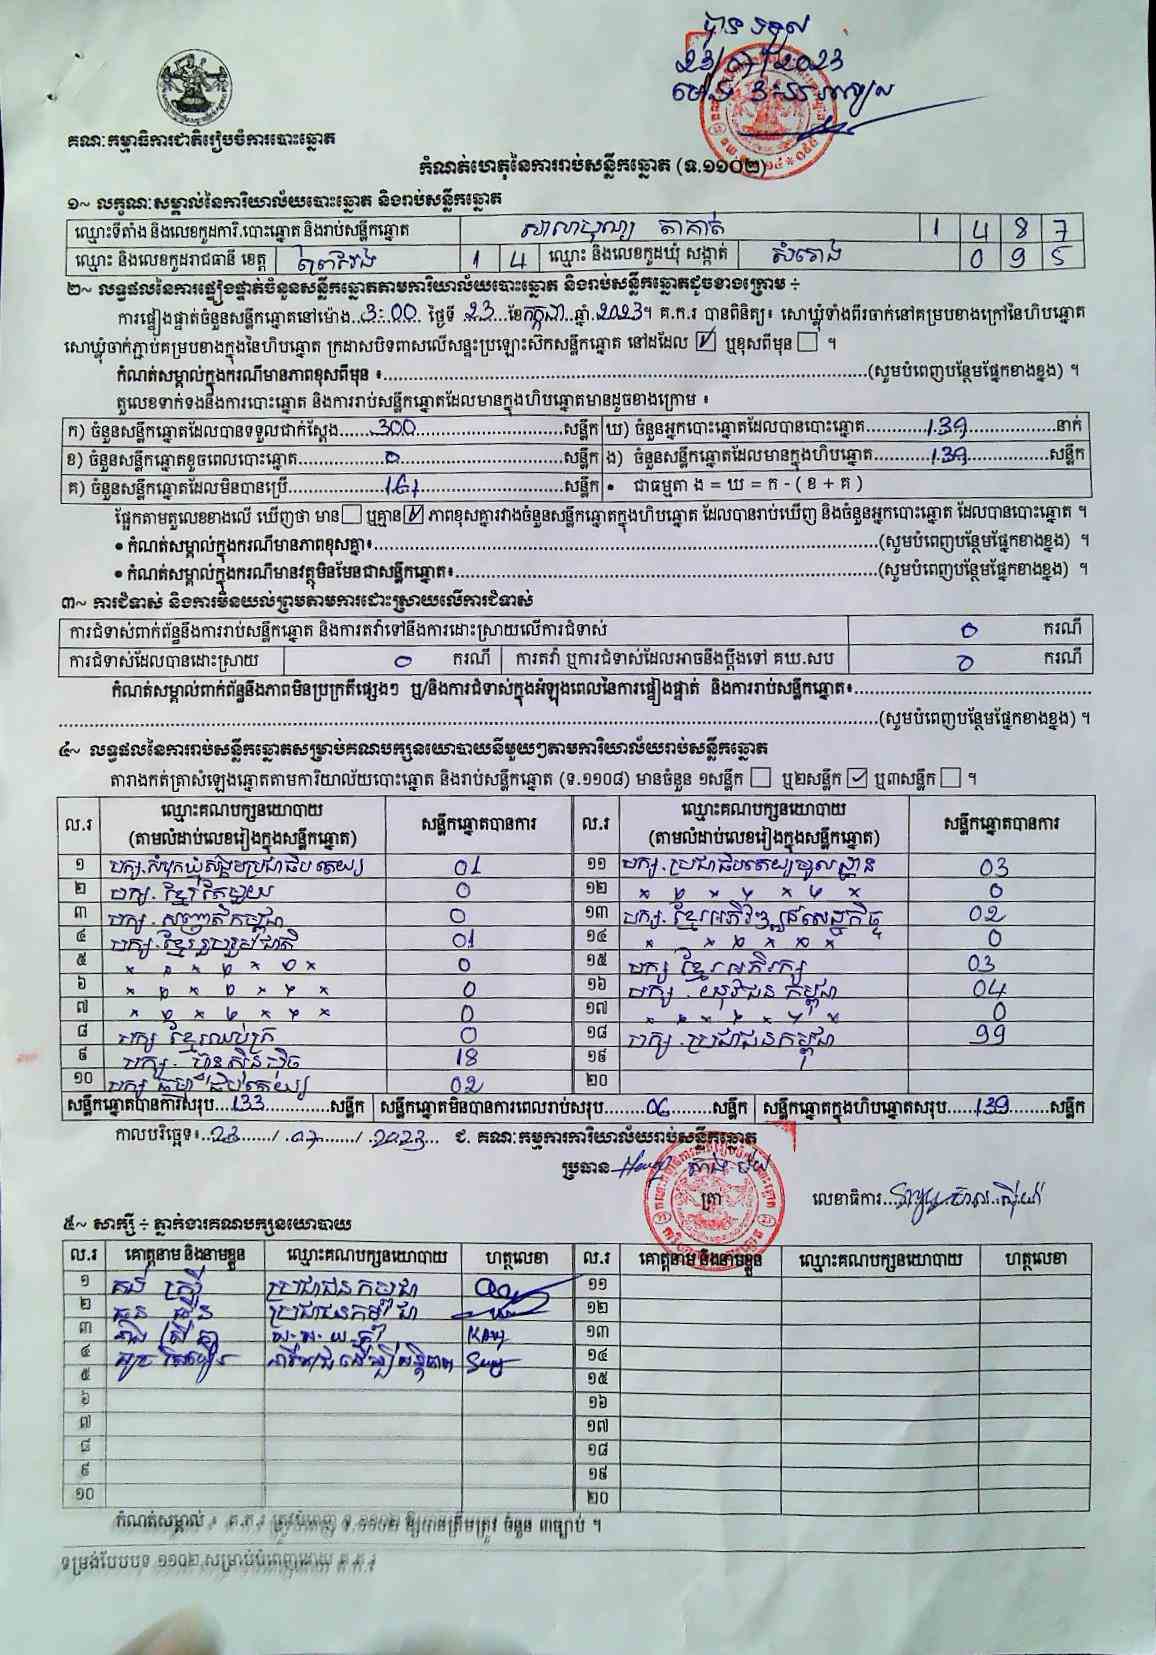 បានទទួល
23/07/2023
គណៈកម្មាធិការជាតិរៀបចំការបោះឆ្នោត
កំណត់ហេតុនៃការរាប់សន្លឹកឆ្នោត (ទ.១១០២)
១~ លក្ខណៈសម្គាល់នៃការិយាល័យបោះឆ្នោត និងរាប់សន្លឹកឆ្នោត
ឈ្មោះទីតាំង និងលេខកូដការិ.បោះឆ្នោត និងរាប់សន្លឹកឆ្នោត សាលាបុណ្យ តាកាត់ 1 4 8 7
ឈ្មោះ និងលេខកូដរាជធានី ខេត្ត ព្រៃវែង 1 4 ឈ្មោះ និងលេខកូដឃុំ សង្កាត់ សំរោង 0 9 5
២~ លទ្ធផលនៃការផ្ទៀងផ្ទាត់ចំនួនសន្លឹកឆ្នោតតាមការិយាល័យបោះឆ្នោត និងរាប់សន្លឹកឆ្នោតដូចខាងក្រោម ÷
ការផ្ទៀងផ្ទាត់ចំនួនសន្លឹកឆ្នោតនៅម៉ោង..3:00 ថ្ងៃទី 23 ខែកក្កដា ឆ្នាំ 2023។ គ.ក.រ បានពិនិត្យ៖ សោឃ្លុំទាំងពីរចាក់នៅគម្របខាងក្រៅនៃហិបឆ្នោត
សោឃ្លុំចាក់ភ្ជាប់គម្របខាងក្នុងនៃហិបឆ្នោត ក្រដាសបិទពាសលើសន្ទះប្រឡោះស៊កសន្លឹកឆ្នោត នៅដដែល ☑ ឬខុសពីមុន ☐ ។
កំណត់សម្គាល់ក្នុងករណីមានភាពខុសពីមុន ៖..........(សូមបំពេញបន្ថែមផ្នែកខាងខ្នង) ។
តួលេខទាក់ទងនឹងការបោះឆ្នោត និងការរាប់សន្លឹកឆ្នោតដែលមានក្នុងហិបឆ្នោតមានដូចខាងក្រោម ៖
ក) ចំនួនសន្លឹកឆ្នោតដែលបានទទួលជាក់ស្តែង.....300.....សន្លឹក ឃ) ចំនួនអ្នកបោះឆ្នោតដែលបានបោះឆ្នោត.....139.....នាក់
ខ) ចំនួនសន្លឹកឆ្នោតខូចពេលបោះឆ្នោត.....0.....សន្លឹក ង) ចំនួនសន្លឹកឆ្នោតដែលមានក្នុងហិបឆ្នោត.....139.....សន្លឹក
គ) ចំនួនសន្លឹកឆ្នោតដែលមិនបានប្រើ.....161.....សន្លឹក • ជាធម្មតា ង = ឃ = ក - ( ខ + គ )
ផ្អែកតាមតួលេខខាងលើ ឃើញថា មាន ☐ ឬគ្មាន ☑ ភាពខុសគ្នារវាងចំនួនសន្លឹកឆ្នោតក្នុងហិបឆ្នោត ដែលបានរាប់ឃើញ និងចំនួនអ្នកបោះឆ្នោត ដែលបានបោះឆ្នោត ។
• កំណត់សម្គាល់ក្នុងករណីមានភាពខុសគ្នា៖..........(សូមបំពេញបន្ថែមផ្នែកខាងខ្នង) ។
• កំណត់សម្គាល់ក្នុងករណីមានវត្ថុមិនមែនជាសន្លឹកឆ្នោត៖..........(សូមបំពេញបន្ថែមផ្នែកខាងខ្នង) ។
៣~ ការជំទាស់ និងការមិនយល់ព្រមតាមការដោះស្រាយលើការជំទាស់
ការជំទាស់ពាក់ព័ន្ធនឹងការរាប់សន្លឹកឆ្នោត និងការតវ៉ាទៅនឹងការដោះស្រាយលើការជំទាស់ 0 ករណី
ការជំទាស់ដែលបានដោះស្រាយ 0 ករណី ការតវ៉ា ឬការជំទាស់ដែលអាចនឹងប្តឹងទៅ គឃ.សប 0 ករណី
កំណត់សម្គាល់ពាក់ព័ន្ធនឹងភាពមិនប្រក្រតីផ្សេងៗ ឬ/និងការជំទាស់ក្នុងអំឡុងពេលនៃការផ្ទៀងផ្ទាត់ និងការរាប់សន្លឹកឆ្នោត៖..........
..........(សូមបំពេញបន្ថែមផ្នែកខាងខ្នង) ។
៤~ លទ្ធផលនៃការរាប់សន្លឹកឆ្នោតសម្រាប់គណបក្សនយោបាយនីមួយៗតាមការិយាល័យរាប់សន្លឹកឆ្នោត
តារាងកត់ត្រាសំឡេងឆ្នោតតាមការិយាល័យបោះឆ្នោត និងរាប់សន្លឹកឆ្នោត (ទ.១១០៨) មានចំនួន ១សន្លឹក ☐ ឬ២សន្លឹក ☑ ឬ៣សន្លឹក ☐ ។
ល.រ ឈ្មោះគណបក្សនយោបាយ (តាមលំដាប់លេខរៀងក្នុងសន្លឹកឆ្នោត) សន្លឹកឆ្នោតបានការ ល.រ ឈ្មោះគណបក្សនយោបាយ (តាមលំដាប់លេខរៀងក្នុងសន្លឹកឆ្នោត) សន្លឹកឆ្នោតបានការ
១ បក្ស.សំបុកឃ្មុំសង្គមប្រជាធិបតេយ្យ 01 ១១ បក្ស.ប្រជាធិបតេយ្យមូលដ្ឋាន 03
២ បក្ស.ខ្មែរតែមួយ 0 ១២ " " " " " " 0
៣ បក្ស.សញ្ជាតិកម្ពុជា 0 ១៣ បក្ស.ខ្មែរអភិវឌ្ឍន៍សេដ្ឋកិច្ច 02
៤ បក្ស.ខ្មែររួបរួមជាតិ 01 ១៤ " " " " " 0
៥ " " " " " " 0 ១៥ បក្ស ខ្មែរអភិរក្ស 03
៦ " " " " " " 0 ១៦ បក្ស.យុវជនកម្ពុជា 04
៧ " " " " " " 0 ១៧ " " " " " " 0
៨ បក្ស ខ្មែរឈប់ក្រ 0 ១៨ បក្ស.ប្រជាជនកម្ពុជា 99
៩ បក្ស. ហ៊្វុនស៊ិនប៉ិច 18 ១៩
១០ បក្ស ធម្មាធិបតេយ្យ 02 ២០
សន្លឹកឆ្នោតបានការសរុប...133...សន្លឹក សន្លឹកឆ្នោតមិនបានការពេលរាប់សរុប...06...សន្លឹក សន្លឹកឆ្នោតក្នុងហិបឆ្នោតសរុប...139...សន្លឹក
កាលបរិច្ឆេទ៖..23../..07../..2023.. ជ. គណៈកម្មការការិយាល័យរាប់សន្លឹកឆ្នោត
ប្រធាន
ត្រា លេខាធិការ
៥~ សាក្សី ÷ ភ្នាក់ងារគណបក្សនយោបាយ
ល.រ គោត្តនាម និងនាមខ្លួន ឈ្មោះគណបក្សនយោបាយ ហត្ថលេខា ល.រ គោត្តនាម និងនាមខ្លួន ឈ្មោះគណបក្សនយោបាយ ហត្ថលេខា
១ ប្រជាជនកម្ពុជា ១១
២ ប្រជាជនកម្ពុជា ១២
៣ ១៣
៤ ១៤
៥ ១៥
៦ ១៦
៧ ១៧
៨ ១៨
៩ ១៩
១០ ២០
កំណត់សម្គាល់ ៖ គ.ក.រ ត្រូវបំពេញ ទ.១១០២ ឱ្យបានត្រឹមត្រូវ ចំនួន ៣ច្បាប់ ។
ទម្រង់បែបបទ ១១០២ សម្រាប់បំពេញដោយ គ.ក.រ